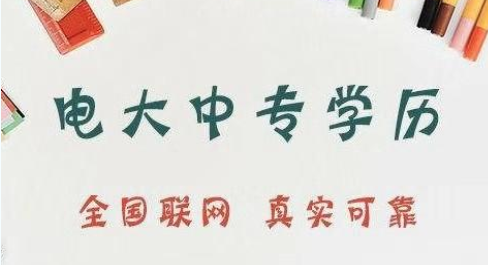 电大中专学历
全国联网 真实可靠